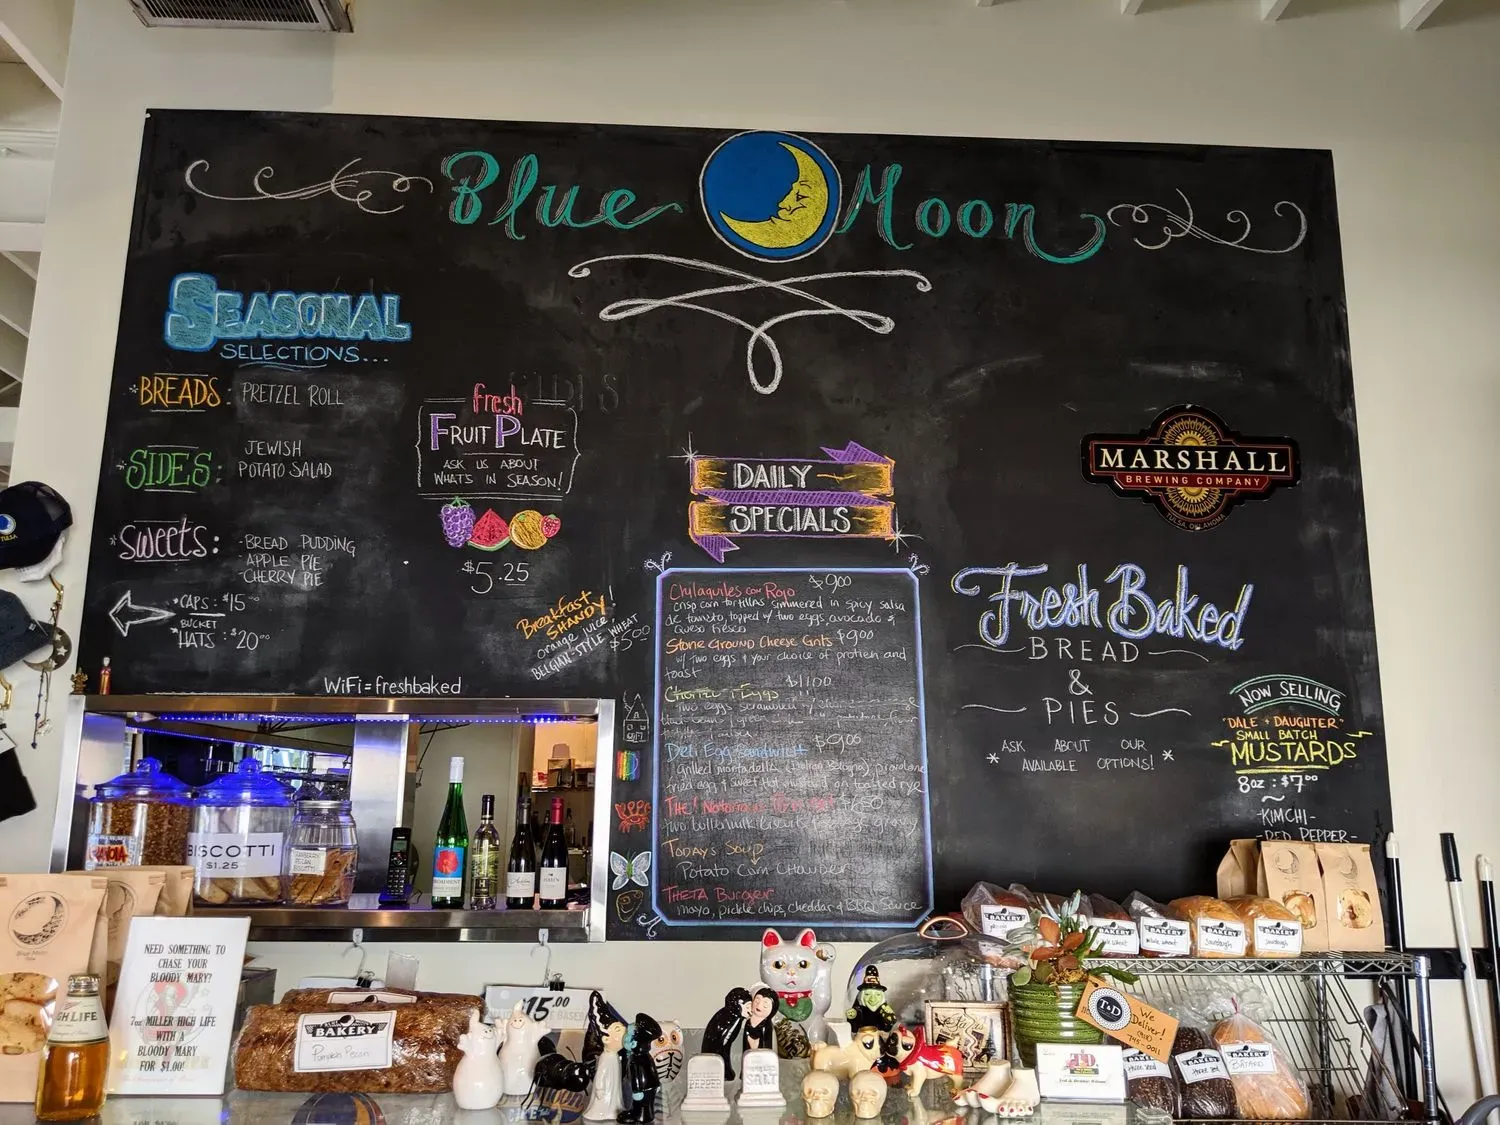 Blue Moon
SEASONAL
SELECTIONS...
*BREADS: PRETZEL ROLL
*SIDES: JEWISH
POTATO SALAD
*SWEETS: -BREAD PUDDING
APPLE PIE
-CHERRY PIE
*CAPS: $15
BUCKET
*HATS: $20
WiFi=freshbaked
fresh
FRUIT PLATE
ASK US ABOUT
WHAT'S IN SEASON!
$5.25
Breakfast
SHANDY!
orange juice,
BELGIAN-STYLE WHEAT
$5.00
DAILY
SPECIALS
Chylaquiles con Rojo $9.00
crisp corn tortillas simmered in spicy salsa
de tomato, topped w/ two eggs avocado &
Queso fresco
Stone Ground Cheese Grits $9.00
w/ two eggs & your choice of protien and
toast
$11.00
two eggs scrambled w/
Deli Egg Sandwich $9.00
grilled mortadella (Italian Bologna) provolone
fried egg & sweet hot mustard on toasted rye
THE $6.50
two buttermilk biscuits gravy
TODAY'S SOUP
Potato Corn Chowder
THETA Burger
mayo, pickle chips, cheddar & BBQ Sauce
MARSHALL
BREWING COMPANY
TULSA, OKLAHOMA
Fresh Baked
BREAD
&
PIES
* ASK ABOUT OUR
AVAILABLE OPTIONS! *
NOW SELLING
"DALE + DAUGHTER"
SMALL BATCH
MUSTARDS
8oz : $7.00
~
-KIMCHI-
-RED PEPPER-
BISCOTTI
$1.25
NEED SOMETHING TO
CHASE YOUR
BLOODY MARY?
7oz MILLER HIGH LIFE
WITH A
BLOODY MARY
FOR $1.00!
HIGH LIFE
BAKERY
Pumpkin Pecan
$15.00
PEPPER
SALT
T&D
We
Deliver!
BAKERY
BAKERY
whole wheat
BAKERY
whole wheat
BAKERY
Sourdough
BAKERY
Sourdough
BAKERY
three seed
BAKERY
three seed
BAKERY
BATARD